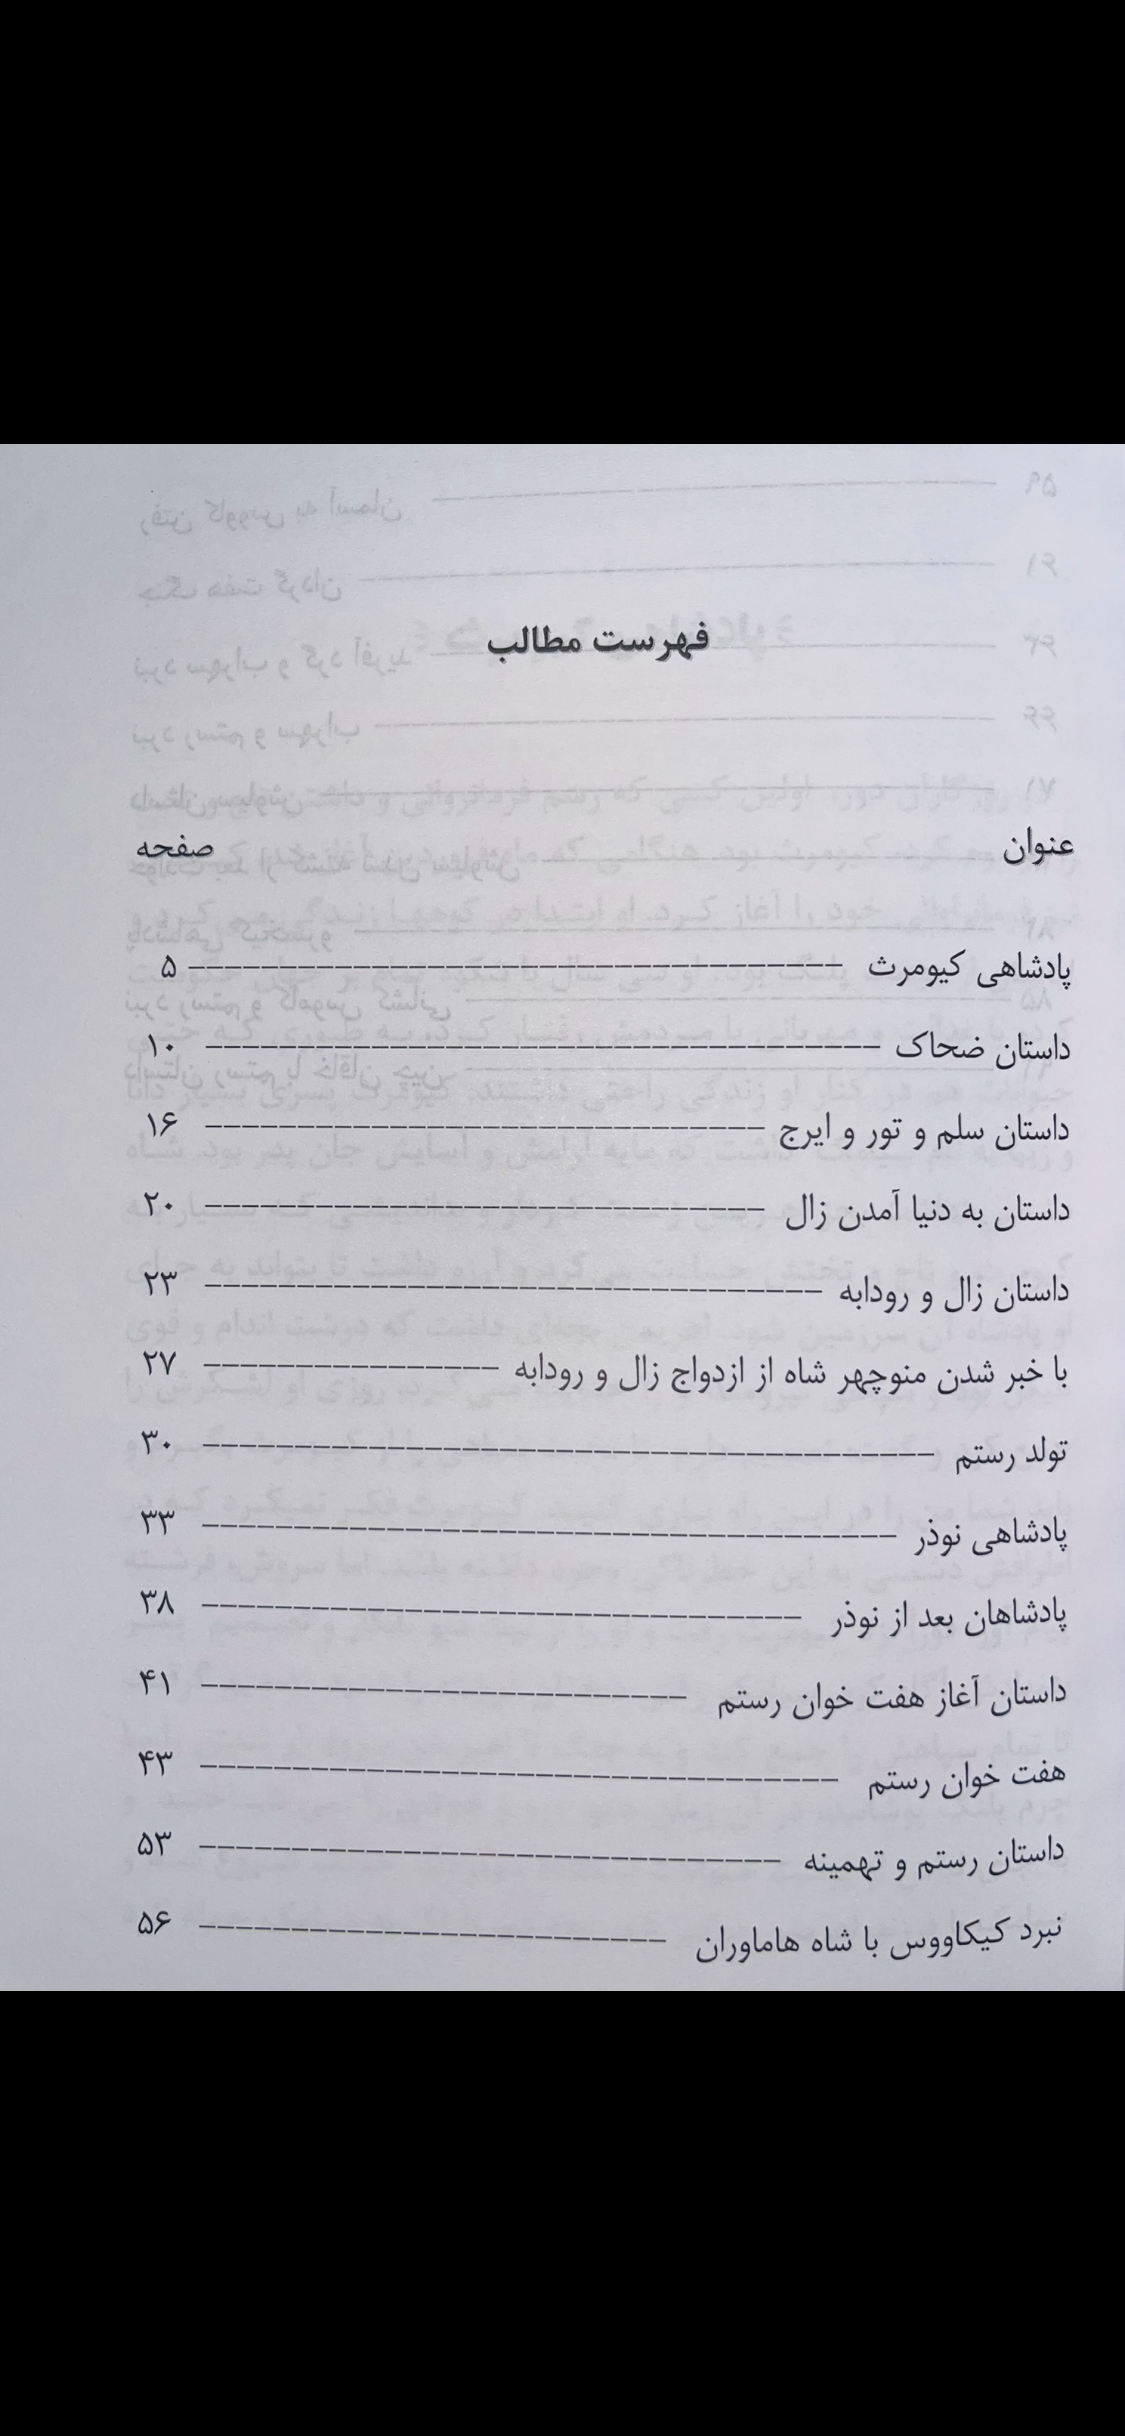 فهرست مطالب
عنوان صفحه
پادشاهی کیومرث ۵
داستان ضحاک ۱۰
داستان سلم و تور و ایرج ۱۶
داستان به دنیا آمدن زال ۲۰
داستان زال و رودابه ۲۳
با خبر شدن منوچهر شاه از ازدواج زال و رودابه ۲۷
تولد رستم ۳۰
پادشاهی نوذر ۳۳
پادشاهان بعد از نوذر ۳۸
داستان آغاز هفت خوان رستم ۴۱
هفت خوان رستم ۴۳
داستان رستم و تهمینه ۵۳
نبرد کیکاووس با شاه هاماوران ۵۶